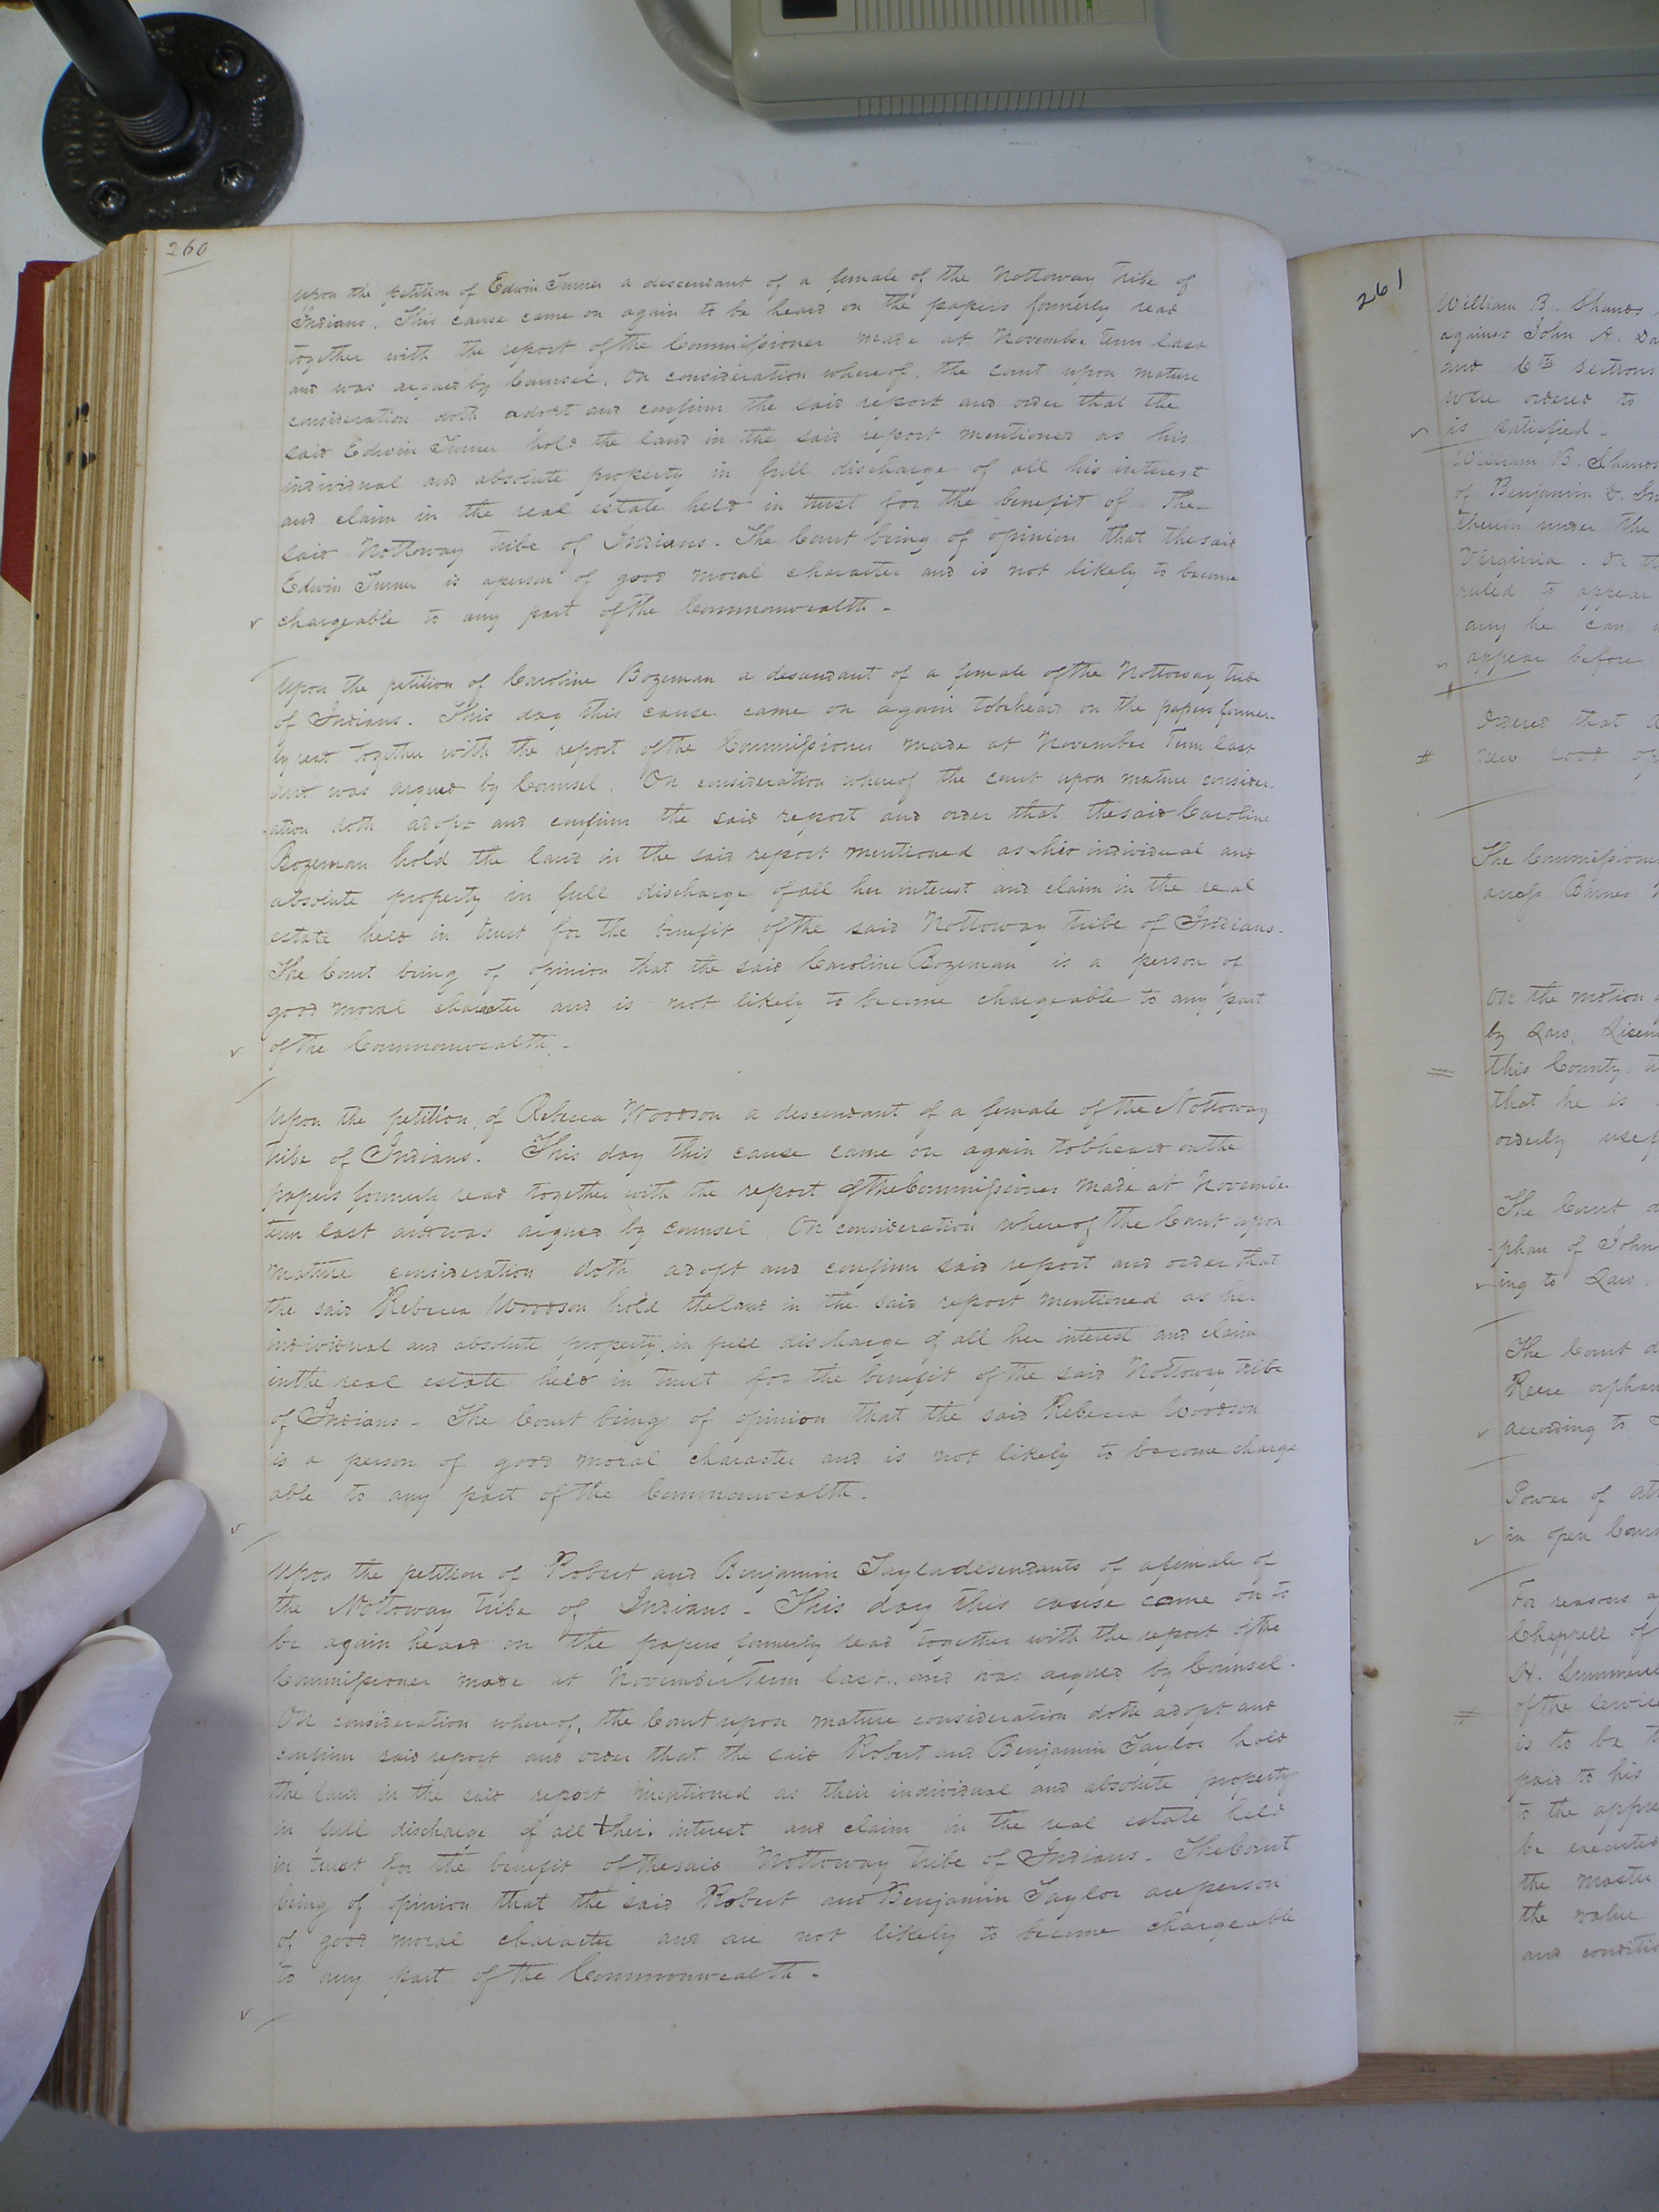 260
Upon the petition of Edwin Turner a descendant of a female of the Nottoway tribe of
Indians. This cause came on again to be heard on the papers formerly read
together with the report of the Commissioner made at November term last
and was argued by Counsel. On consideration whereof, the court upon mature
consideration doth adopt and confirm the said report and order that the
said Edwin Turner hold the land in the said report mentioned as his
individual and absolute property in full discharge of all his interest
and claim in the real estate held in trust for the benefit of the
said Nottoway tribe of Indians. The Court being of opinion that the said
Edwin Turner is a person of good moral character and is not likely to become
chargeable to any part of the Commonwealth -
Upon the petition of Caroline Bozeman a descendant of a female of the Nottoway tribe
of Indians. This day this cause came on again to be heard on the papers former-
ly read together with the report of the Commissioner made at November Term last
and was argued by Counsel. On consideration whereof the court upon mature consider-
-ation doth adopt and confirm the said report and order that the said Caroline
Bozeman hold the land in the said report mentioned as her individual and
absolute property in full discharge of all her interest and claim in the real
estate held in trust for the benefit of the said Nottoway tribe of Indians -
The Court being of opinion that the said Caroline Bozeman is a person of
good moral character and is not likely to become chargeable to any part
of the Commonwealth -
Upon the petition of Rebecca Woodson a descendant of a female of the Nottoway
tribe of Indians. This day this cause came on again to be heard on the
papers formerly read together with the report of the Commissioner made at November
term last and was argued by counsel. On consideration whereof the Court upon
mature consideration doth adopt and confirm said report and order that
the said Rebecca Woodson hold the land in the said report mentioned as her
individual and absolute property in full discharge of all her interest and claim
in the real estate held in trust for the benefit of the said Nottoway tribe
of Indians - The Court being of opinion that the said Rebecca Woodson
is a person of good moral character and is not likely to become charge
able to any part of the Commonwealth -
Upon the petition of Robert and Benjamin Taylor descendants of a female of
the Nottoway tribe of Indians - This day this cause came on to
be again heard on the papers formerly read together with the report of the
Commissioner made at November Term last. and was argued by Counsel -
On consideration whereof, the Court upon mature consideration doth adopt and
confirm said report and order that the said Robert and Benjamin Taylor hold
the land in the said report mentioned as their individual and absolute property
in full discharge of all their interest and claim in the real estate held
in trust for the benefit of the said Nottoway tribe of Indians - The Court
being of opinion that the said Robert and Benjamin Taylor are person
of good moral character and are not likely to become chargeable
to any part of the Commonwealth -
261
William B. Shands
against John A.
and 6th sections
were ordered to
is satisfied -
William B. Shands
of Benjamin
therein under the
Virginia.
ruled to appear
any he can
appear before
Ordered that
new road
The Commissioners
across Barnes
On the motion
by Law,
this County
that he is
orderly
The Court
-phan of John
-ing to Law.
The Court
Reese orphan
according to
Power of
in open Court
For reasons
Chappell of
H.
of the
is to be
paid to his
to the
be executed
the master
the value
and